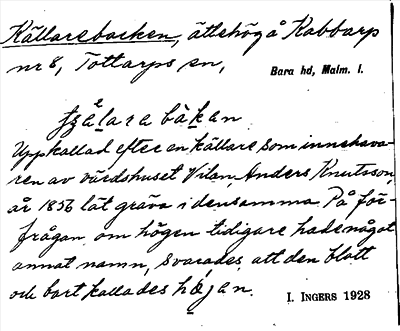 Källarebacken, ättehög å Kabbarp
nr 8, Tottarps sn,
Bara hd, Malm. l.
tʒǎlara bàkan
Uppkallad efter en källare, som innehava-
ren av värdshuset Vilan, Anders Knutsson,
år 1856 lät gräva i densamma. På för-
frågan, om högen tidigare hade något
annat namn, svarades, att den blott
och bart kallades höjan.
I. INGERS 1928